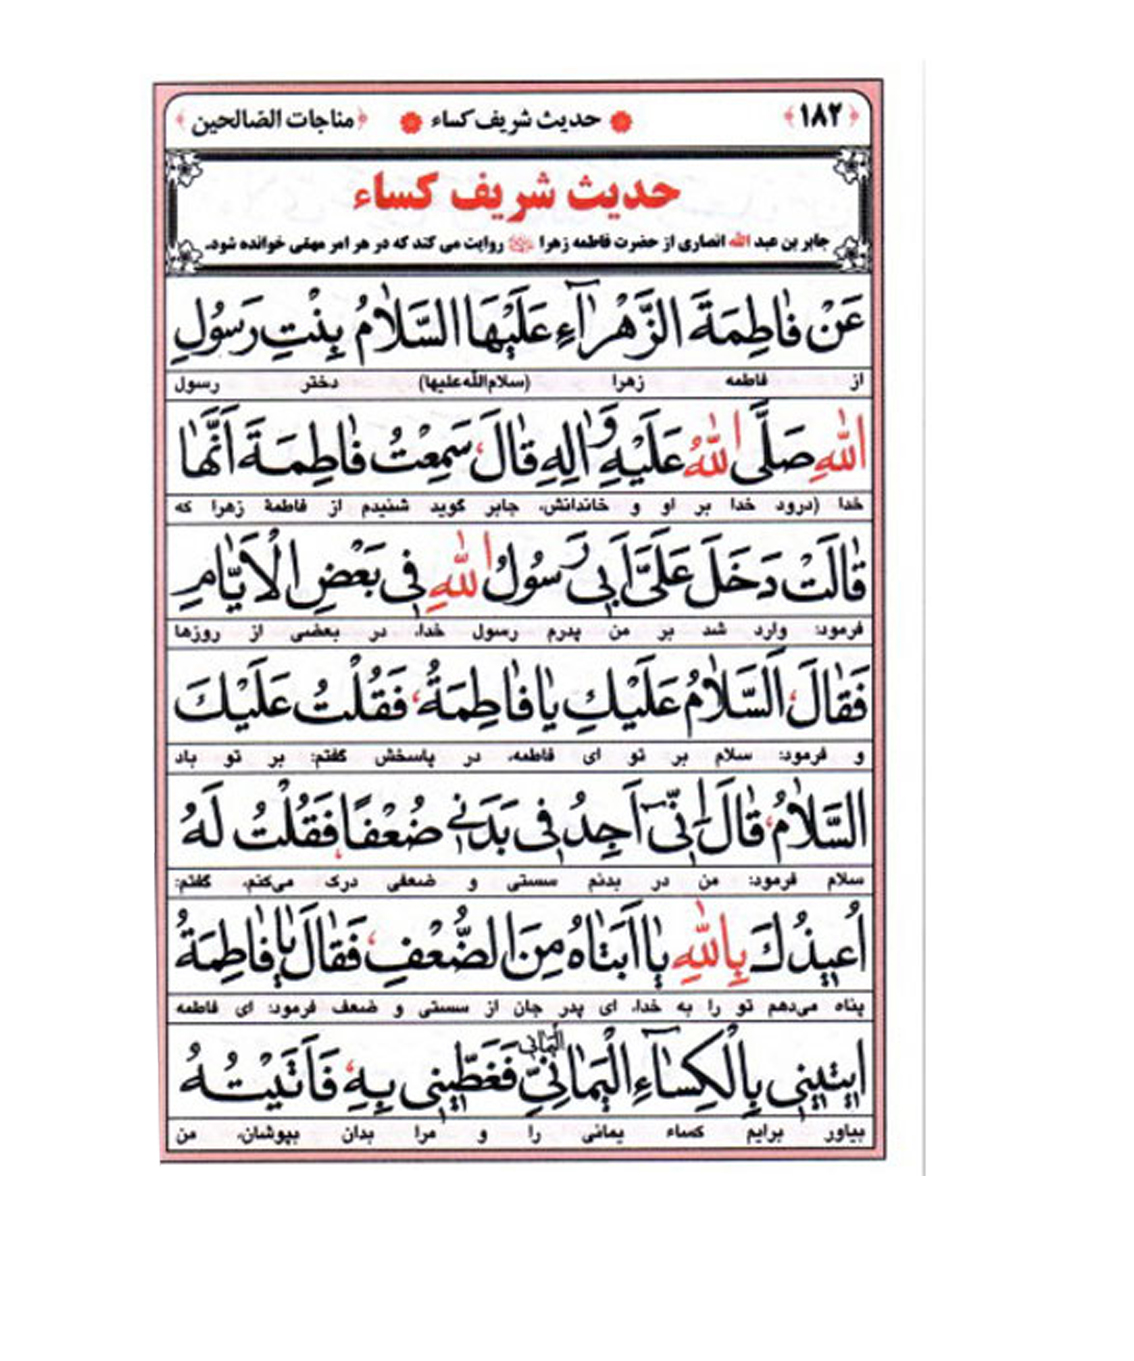 ﴿۱۸۲﴾ حدیث شریف کساء ﴿مناجات الصّالحین﴾
حدیث شریف کساء
جابر بن عبد الله انصاری از حضرت فاطمه زهرا روایت می کند که در هر امر مهمّی خوانده شود.
عَنْ فٰاطِمَةَ الزَّهْرٰآءِ عَلَيْهَا السَّلاٰمُ بِنْتِ رَسُولِ
از فاطمه زهرا (سلام‌اللّه‌علیها) دختر رسول
اللهِ صَلَّى اللهُ عَلَيْهِ وَاٰلِهِ قٰالَ، سَمِعْتُ فٰاطِمَةَ اَنَّهٰا
خدا (درود خدا بر او و خاندانش، جابر گوید شنیدم از فاطمۀ زهرا که
قٰالَتْ دَخَلَ عَلَىَّ اَبى رَسُولُ اللهِ فى بَعْضِ الْاَيّٰامِ
فرمود: وارد شد بر من پدرم رسول خدا، در بعضی از روزها
فَقٰالَ، اَلسَّلاٰمُ عَلَيْكِ يٰا فٰاطِمَةُ، فَقُلْتُ عَلَيْكَ
و فرمود: سلام بر تو ای فاطمه، در پاسخش گفتم: بر تو باد
السَّلاٰمُ، قٰالَ اِنّىٓ اَجِدُ فى بَدَنى ضُعْفًا، فَقُلْتُ لَهُ
سلام فرمود: من در بدنم سستی و ضعفی درک می‌کنم، گفتم:
اُعيذُكَ بِاللهِ يٰا اَبَتٰاهُ مِنَ الضُّعْفِ، فَقٰالَ يٰا فٰاطِمَةُ
پناه می‌دهم تو را به خدا، ای پدر جان از سستی و ضعف فرمود: ای فاطمه
ايتينى بِالْكِسٰآءِ الْيَمٰانِىِّ الْيَمٰانى فَغَطّينى بِهِ، فَاَتَيْتُهُ
بیاور برایم کساء یمانی را و مرا بدان بپوشان، من